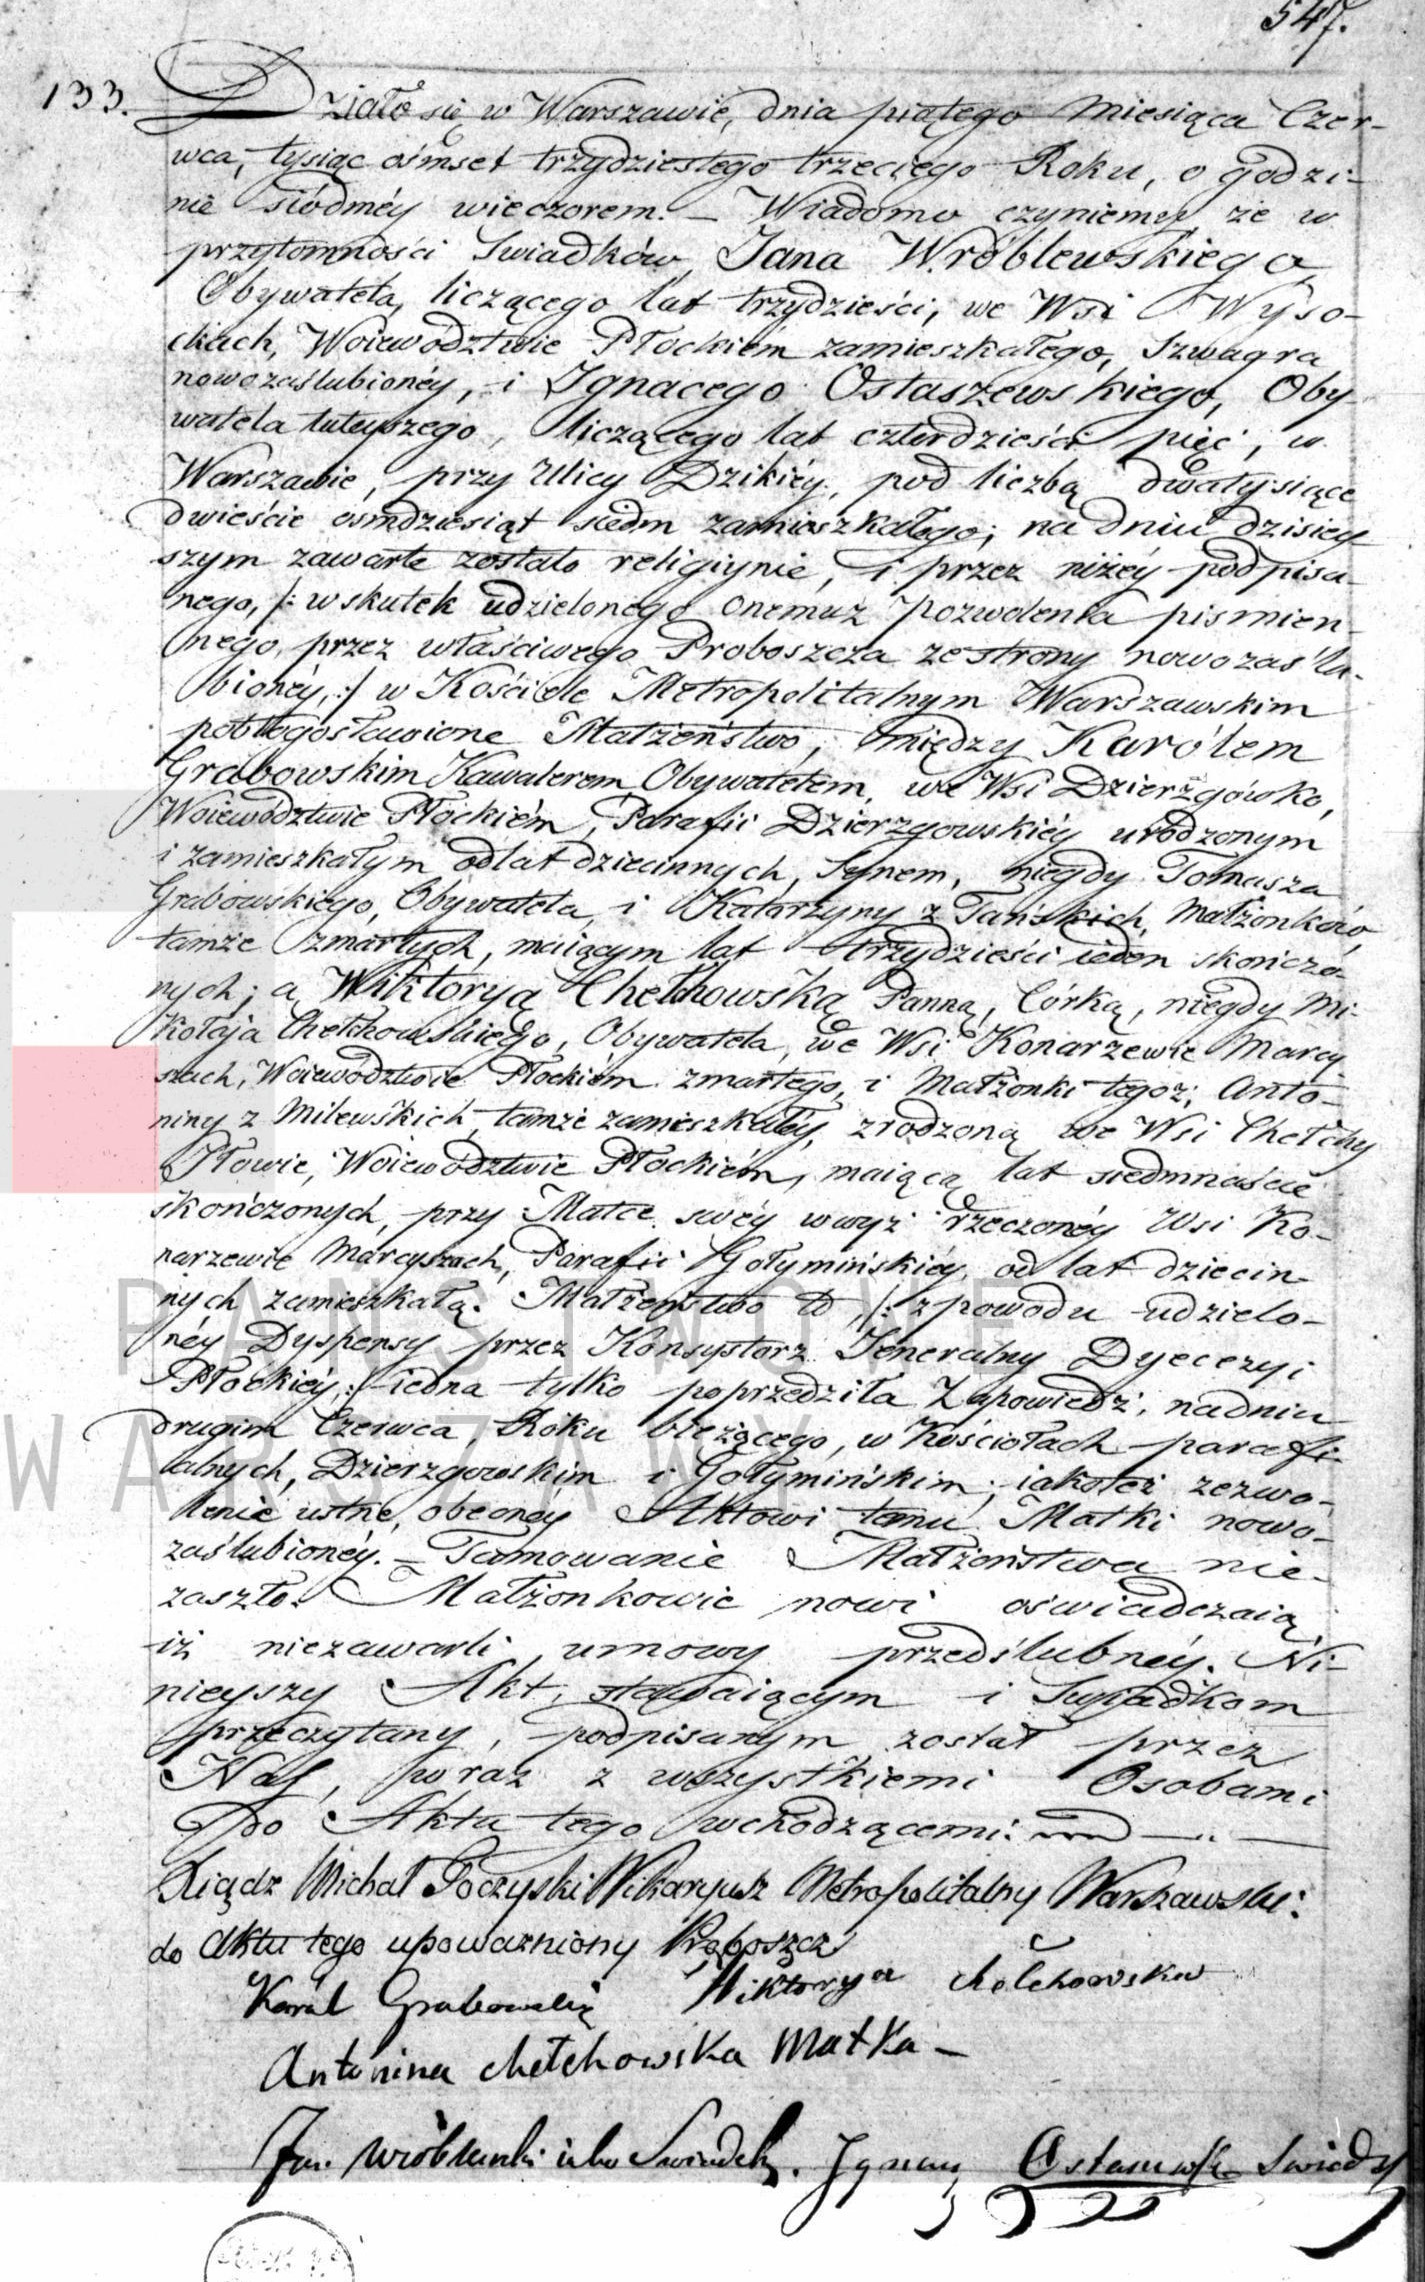 547.
133. Działo się w Warszawie, dnia piątego Miesiąca Czer-
wca, tysiąc ośmset trzydziestego trzeciego Roku, o godzi-
nie siódméy wieczorem. — Wiadomo czyniemy że w
przytomności Swiadków, Jana Wróblewskiego,
Obywatela, liczącego lat trzydzieści, we Wsi Wyso-
ckach, Woiewództwie Płockiém zamieszkałego, Szwagra
nowozaślubionéy, i Ignacego Ostaszewskiego, Oby-
watela tuteyszego, liczącego lat czterdzieści pięć, w
Warszawie, przy Ulicy Dzikiéy, pod liczbą dwatysiące
dwieście osmdziesiąt siedm zamieszkałego; na dniu dzisiey-
szym zawarte zostało religiynie, i przez niżéy podpisa-
nego, /: w skutek udzielonego onemuż pozwolenia pismien-
nego, przez właściwego Proboszcza ze strony nowozaślu-
bionéy, :/ w Kościele Metropolitalnym Warszawskim
pobłogosławione Małżeństwo, między Karólem
Grabowskim Kawalerem, Obywatelem, we Wsi Dzierzgówko,
Woiewództwie Płockiém, Parafii Dzierzgowskiéy urodzonym
i zamieszkałym od lat dziecinnych, Synem, niegdy Tomasza
Grabowskiego, Obywatela, i Katarzyny z Tańskich, Małżonków,
tamże zmarłych, maiącym lat trzydzieści ieden skończo-
nych; a Wiktoryą Chełchowską Panną, Córką, niegdy Mi-
kołaja Chełchowskiego, Obywatela, we Wsi Konarzewie Marcy-
szach, Woiewództwie Płockiém zmarłego, i Małżonki tegoż, Anto-
niny z Milewskich, tamże zamieszkałéy, zrodzoną we Wsi Chełchy
Iłowie, Woiewództwie Płockiém, maiącą lat siedmnaście
skończonych, przy Matce swéy w wyż rzeczonéy Wsi Ko-
narzewie Marcyszach, Parafii Gołymińskiéy, od lat dziecin-
nych zamieszkałą. Małżeństwo to, /: z powodu udzielo-
néy Dyspensy przez Konsystorz Jeneralny Dyecezyi
Płockiéy, :/ iedna tylko poprzedziła Zapowiedź, na dniu
drugim Czerwca, Roku bieżącego, w Kościołach parafi-
alnych, Dzierzgowskim i Gołymińskim; iakoteż zezwo-
lenie ustne, obecnéy Aktowi temu Matki nowo-
zaślubionéy. — Tamowanie Małżeństwa nie-
zaszło. Małżonkowie nowi oświadczaią,
iż niezawarli umowy przedślubnéy. Ni-
nieyszy Akt, stawaiącym i Swiadkom
przeczytany, podpisanym został przez
Nas, wraz z wszystkiemi Osobami
do Aktu tego wchodzącemi.
Xiądz Michał Poczyski Wikaryusz Metropolitalny Warszawski:
do Aktu tego upoważniony Proboszcz
Karol Grabowski Wiktorya Chełchowska
Antonina Chełchowska Matka —
Jan Wróblewski iako Swiadek. Ignacy Ostaszewski Swiadek
PAŃSTWOWE
WARSZAWY